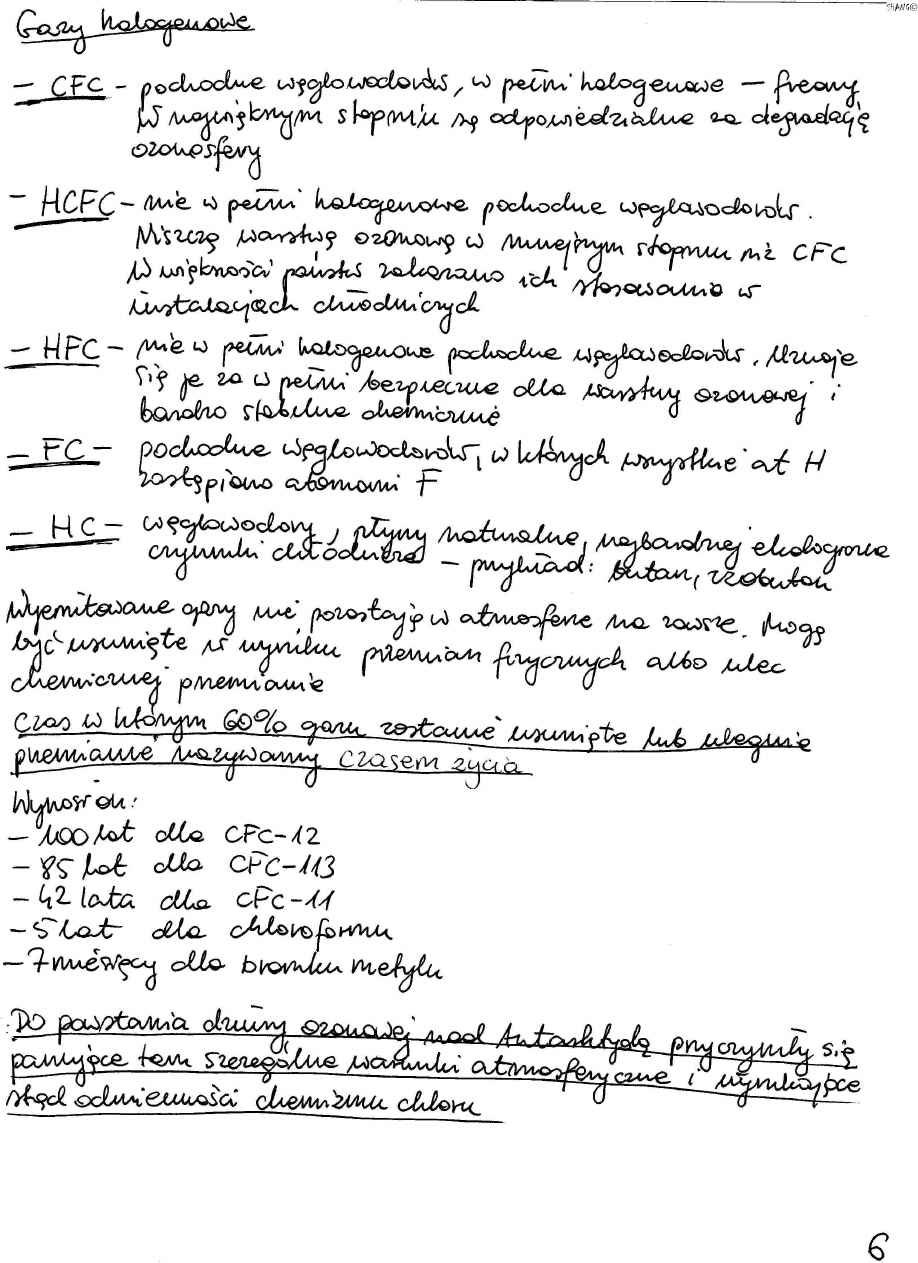 SHANG©
Gazy halogenowe
- CFC - pochodne węglowodorów, w pełni halogenowe - freony
W największym stopniu są odpowiedzialne za degradację
ozonosfery
- HCFC - nie w pełni halogenowe pochodne węglowodorów.
Niszczą warstwę ozonową w mniejszym stopniu niż CFC
W większości państw zakazano ich stosowania w
instalacjach chłodniczych
- HFC - nie w pełni halogenowe pochodne węglowodorów. Uznaje
się je za w pełni bezpieczne dla warstwy ozonowej i
bardzo stabilne chemicznie
- FC - pochodne węglowodorów, w których wszystkie at H
zastąpiono atomami F
- HC - węglowodory, płyny naturalne, najbardziej ekologiczne
czynniki chłodnicze - przykład: butan, izobutan
Wyemitowane gazy nie pozostają w atmosferze na zawsze. Mogą
być usunięte w wyniku przemian fizycznych albo ulec
chemicznej przemianie
Czas w którym 60% gazu zostanie usunięte lub ulegnie
przemianie nazywamy czasem życia
Wynosi on:
- 100 lat dla CFC-12
- 85 lat dla CFC-113
- 42 lata dla CFC-11
- 5 lat dla chloroformu
- 7 miesięcy dla bromku metylu
Do powstania dziury ozonowej nad Antarktydą przyczyniły się
panujące tam szczególne warunki atmosferyczne i wynikające
stąd odmienności chemizmu chloru
6